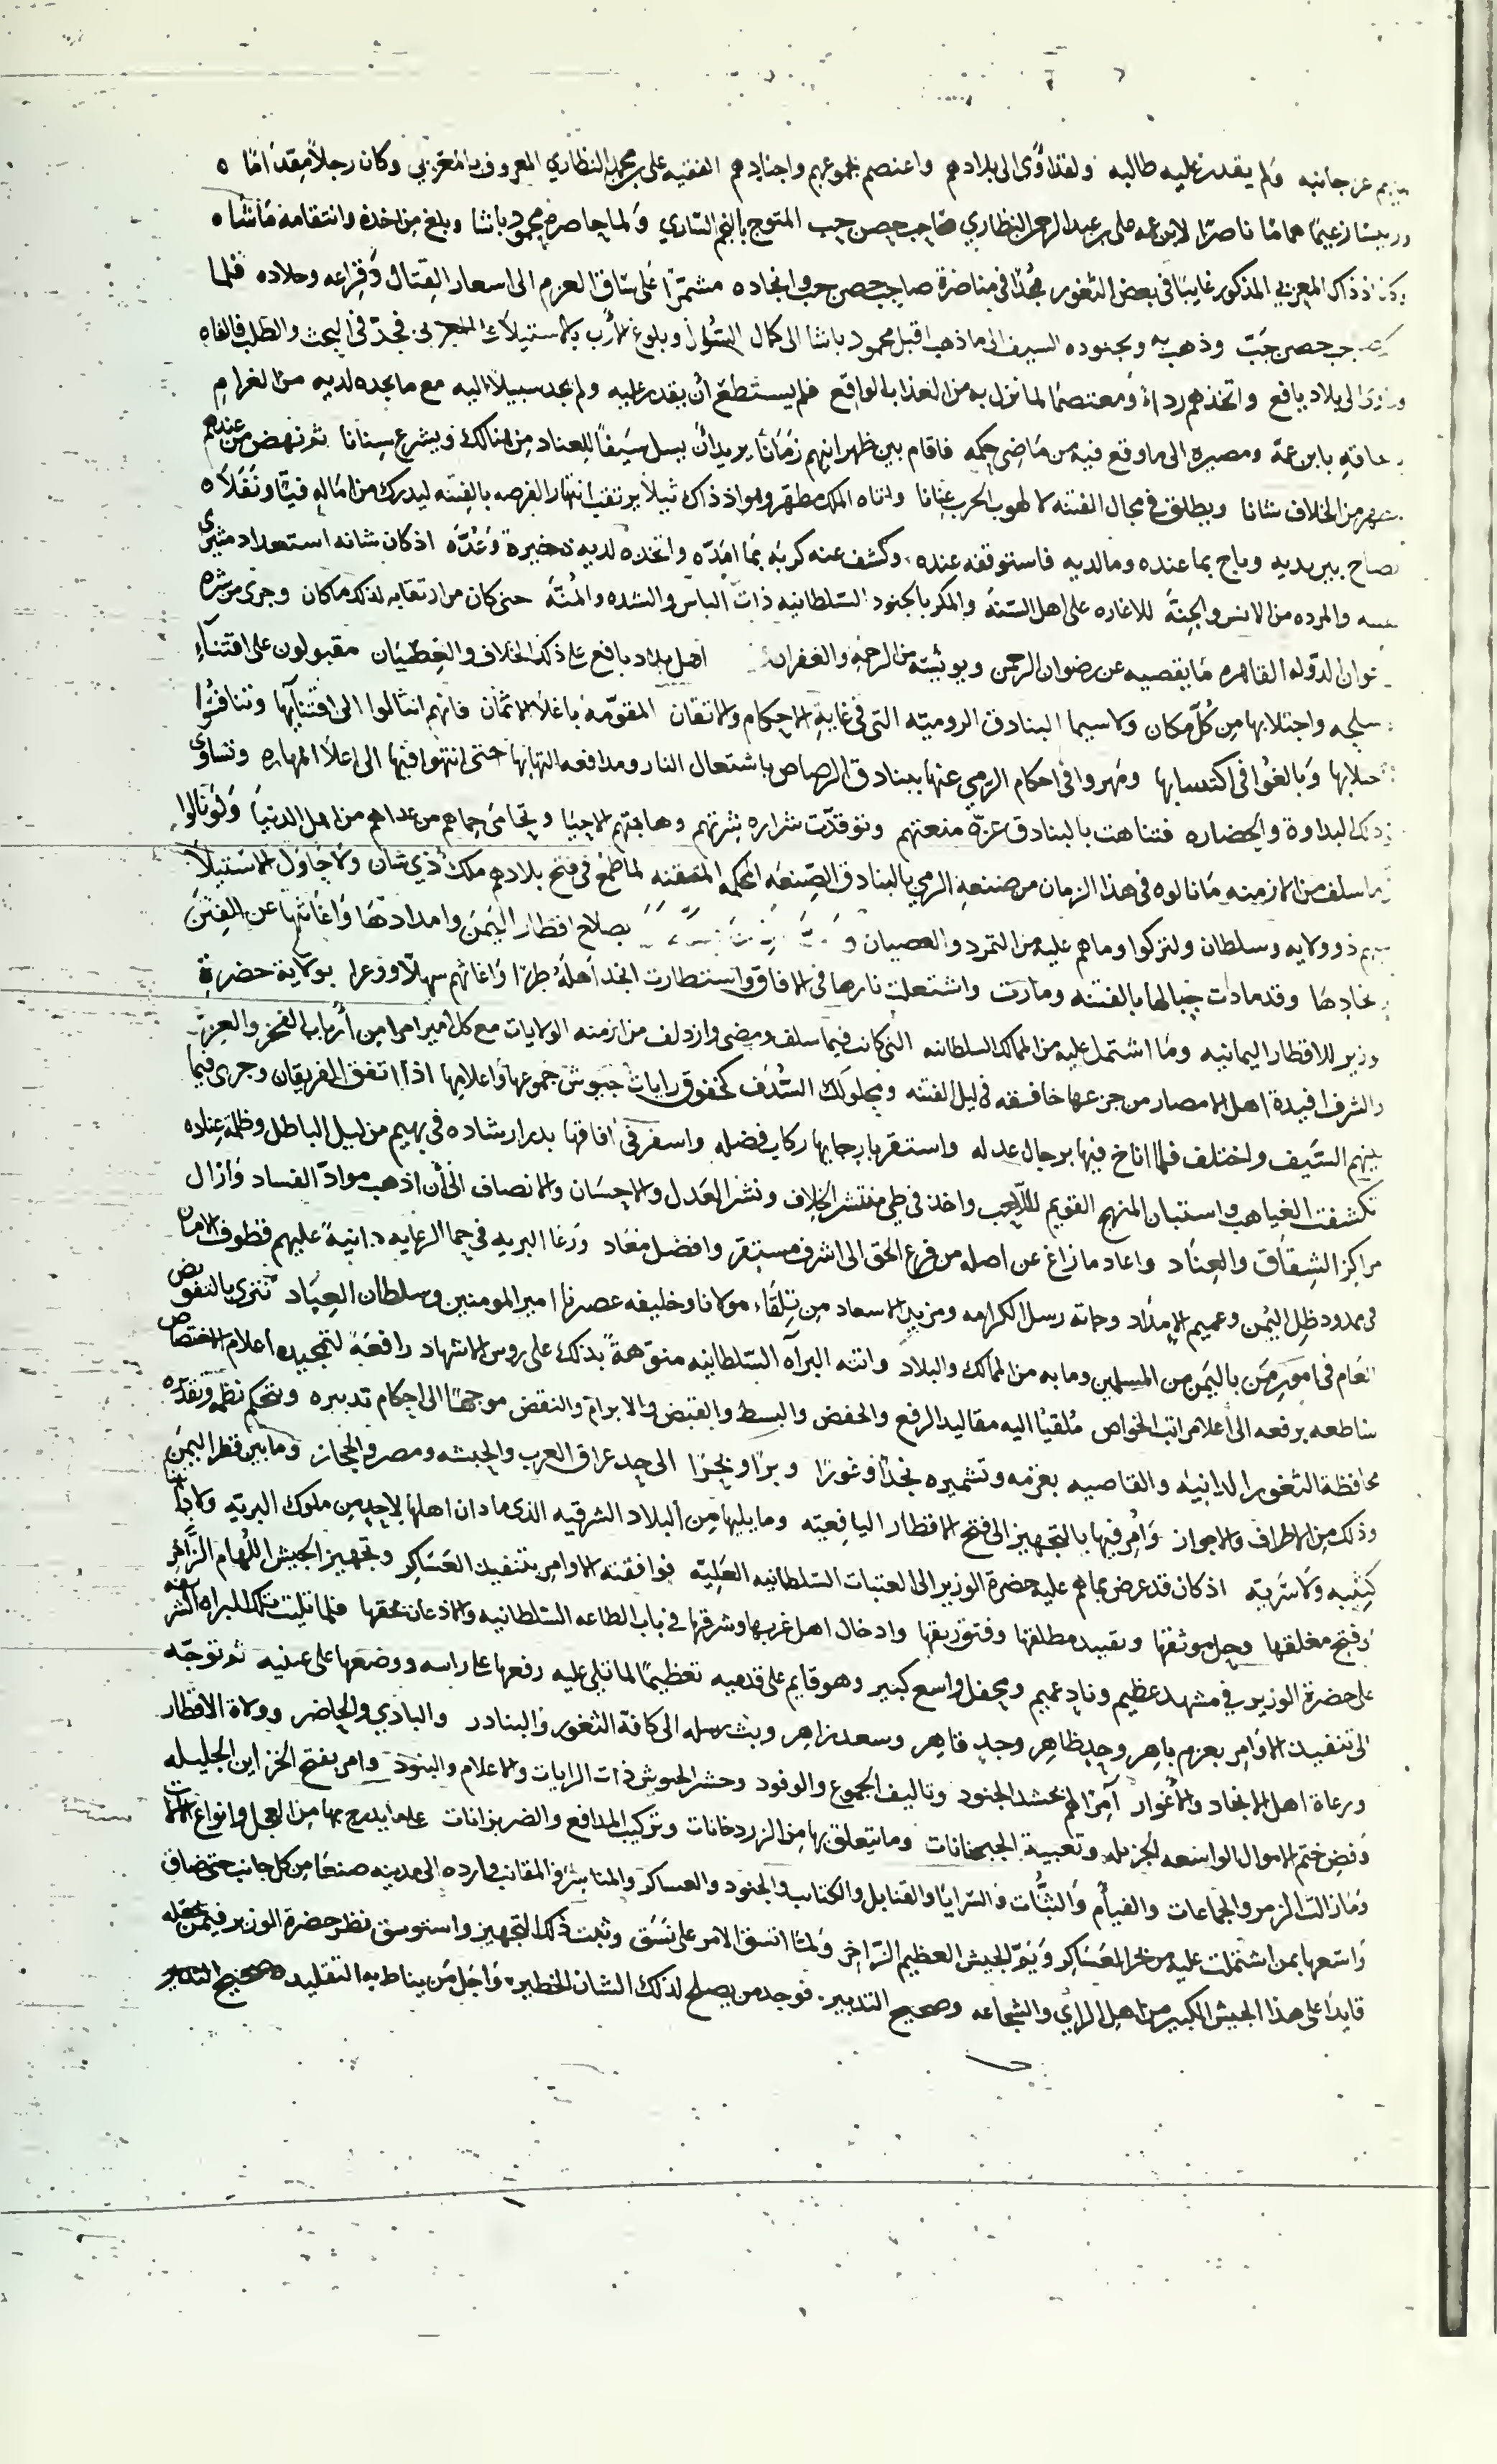 عز جانبه ولم يقدر عليه طالبه ولقد أوى الى بلادهم واعتصم بجموعهم واجنادهم الفقيه على بن محمد النظاري المعروف بالمعزبي وكان رجلاً مقداماً ه
زعيماً هماماً ناصراً لابن عمه على بن عبد الرحمن النظاري صاحب حصن حب المتوج بالنجم السّاري ولما حاصره محمود باشا وبلغ من اخذه وانتقامه ماشاه
اذ ذاك المعزبي المذكور غايبا فى بعض الثغور مجدًّا فى مناصرة صاحب حصن حب وانجاده مشمّراً على سَاق العزم الى اسعار القتال وقراعه وجلاده فلما
صاحب حصن حَبّ وذهب به وبجنوده السيف الى ما ذهب اقبل محمود باشا الى كمال السُّؤل وبلوغ الأرب بالاستيلاء على المعزبي فجدّ فى البحث والطلب فالفاه
الى بلاد يافع واتخذهم ردءاً ومعتصماً لما نزل به من العذاب الواقع فلم يستطع أن يقدر عليه ولم يجد سبيلاً اليه مع ما يجده لديه من الغرام
بالحاقه بابن عمّه ومصيره الى ما وقع فيه من مَاضى حكمه فاقام بين ظهرانيهم زمَانا يريد أن يسل سَيفاً للعناد من هنالك ويشرع سِنانا ثم نهض من عندهم
من الخلاف شانا ويطلق فى مجال الفتنه لا لهوب الحرب عِنانا واتاه الملك مطهر وهو اذ ذاك بثلا يرتقب انتهاز الفرصه بالفتنه ليدرك من اماله فيئا ونفلاه
بين يديه وباح بما عنده ومالديه فاستوقفه عنده وكشف عنه كربه بما امدّه واتخذه لديه ذخيرة وعُدّه اذ كان شانه استعداد
والمرده من الانس والجنّة للاغاره على اهل السّنة والمكر بالجنود السّلطانيه ذات الباس والشده والمُنّة حتى كان من ارتقابه لذلك ما كان وجرى من شره
الدّوله القاهره ما يقصيه عن رضوان الرحمن ويوئسه من الرحمة والغفران اهل بلاد يافع على ذلك الخلاف والعصيان مقبلون على اقتناء
واجتلابها من كلّ مكان ولا سيما البنادق الروميّه التى فى غاية الاحكام والاتقان المقوّمه باغلا الاثمان فانهم انثالوا الى اقتنآيها وتنافسُوا
وبَالغُوا فى اكتسابها ومَهروا فى احكام الرّمي عنها ببنادق الرصاص باشتعال النار ومدافعه التهابها حتى انتهوا فيها الى اعلا المهاره وتساوى
البداوة والحضاره فتناهت بالبنادق عزة منعتهم وتوقدّت شراره شرّتهم وهابتهم الاحيا وتحامى حماهم من عداهم من اهل الدنيا ولو نالوا
سلف من الازمنه مَا نالوه فى هذا الزمان من صنعة الرمي بالبنادق الصّنعه المحكمه المتقنه لما طمع فى فتح بلادهم ملك ذي شان ولا حاول الاستيلا
ذو ولايه وسلطان ولتركوا وماهم عليه من التمرد والعصيان و بصلاح اقطار اليَمن وامدادها واغاثتها عن الفتن
وقد مادت جبالها بالفتنه ومارت واشتعلت نارها فى الافاق واستطارت انجد اهلها طرّا واغاثهم سهلاً ووعرا بولاية حضرة
وزير للاقطار اليمانيه ومَا اشتمل عليه من الممالك السلطانيه التى كانت فيما سلف ومضى وازدلف من ازمنه الولايات مع كل امير امرا من أرباب الفخر والعز
والشرف افيدة اهل الامصار من جزعها خافقه فى ليل الفتنه ومحلولك السُّدَف كخفوق رايات جيوش جموعها واعلامها اذا اتفق الفريقان وجرى فيما
بينهم السّيف واختلف فلما اناخ فيها برجال عدله واستقر بارجايها ركاب فضله واسفر فى افاقها بدر ارشاده فى بهيم من ليل الباطل وظلمة عناده
تكشفت الغياهب واستبان المنهج القويم للّاحب واخذ فى طي منتشر الخلاف ونشر العَدل والاحسَان والانصاف الى أن اذهب موادّ الفساد وازال
مراكز الشِقاق والعِناد واعاد ما زاغ عن اصله من فرع الحق الى اشرف مستقر وافضل معَاد ورَعَا البريه فى حما الرعايه دانيةً عليهم قطوف الامان
فى ممدود ظل اليُمن وعميم الامدَاد وجاته رسل الكرامه ومزيد الاسعاد من تلقاء مولانا وخليفه عصرنا امير المومنين وسلطان العِبَاد تترى بالتفويض
العَام فى امور من باليَمن من المسلمين وما به من الممالك والبلاد واتته البرآه السّلطانيه منوّهةً بذلك على روس الاشهاد رافعَة لتمجيده أعلام الاختصاص
ساطعه برفعه الى أعلا مراتب الخواص مُلقياً اليه مقاليد الرفع والخفض والبسط والقبض والابرام والنقض موجهًا الى احكام تدبيره وبتحكم نظمه ونقده
محافظة الثغور الدانيه والقاصيه بعزمه وتشميره نجداً وغوراً وبراً وبَحرًا الى حد عراق العرب والحبشه ومصر والحجاز وما بين قطر اليمَن
وذلك من الاطراف والاجواز وَأمر فيها بالتجهيز الى فتح الاقطار اليافعيّه وما يليها مِن البلاد الشرقيه الذى ما دان اهلها لاحد من ملوك البريّه ولا
كتيبه ولا سَريّه اذ كان قد عرض بماهم عليه حضرة الوزير الى العتبات السّلطانيه العَليّه فوافقته الاوامر بتنفيذ العسَاكر وتجهيز الجيش اللُهام الزّاخر
وفتح مغلقها وحل موثقها وتقييد مطلقها وفتق رتقها وادخال اهل غربها وشرقها فى باب الطاعه السّلطانيه والاذعان لحقها فلما تليت تلك البراه الشريفه
على حضرة الوزير فى مشهد عظيم وناد عميم ومحفل واسع كبير وهو قايم على قدميه تعظيماً لما تلى عليه رفعها على راسه ووضعها على عينيه ثم توجّه
الى تنفيذ الاوَامر بعزم باهر وجدٍ ظاهر وحد قاهر وسعد زاهر وبث رسله الى كافة الثغور والبنادر والبادي والحاضر وولاة الاقطار
ورعاة اهل الانجاد والاغوار آمراً لهم بحشد الجنود وتاليف الجموع والوفود وحشر الجيوش ذات الرايات والاعلام والبنود وامر بفتح الخزاين الجليله
وفض ختم الاموال الواسعه الجزيله وتعبية الجبخانات وما يتعلق بها من الزردخانات وتركيب المدافع والضربزانات على ما يدرج بها من العجل وانواع الالات
وَما زالت الزمر والجماعات والفيأم وَالثبَّات والسّرايا والقنابل والكتايب والجنود والعساكر والمناسر والمقانب وارده الى مدينه صنعَا من كل جانب حتى ضاق
وَاسعها بمن اشتملت عليه من بحر العسَاكر وَيَمّ الجيش العظيم الزّاخر ولمّا اتسق الامر على نَسَق وثبت ذلك التجهيز واستوسق نظر حضرة الوزير فيمن يجعله
قايدًا على هذا الجيش الكبير من اهل الراي والشجاعه وصحيح التدبير فوجد من يصلح لذلك الشان الخطير وَاجل مَن يناط به التقليد